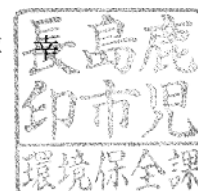 幸
鹿児
島市
長印
環境保全課